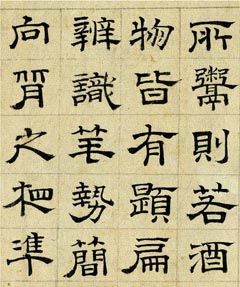 所鬻則茗酒
物皆有題扁
辨識笔勢簡
向背之杷準